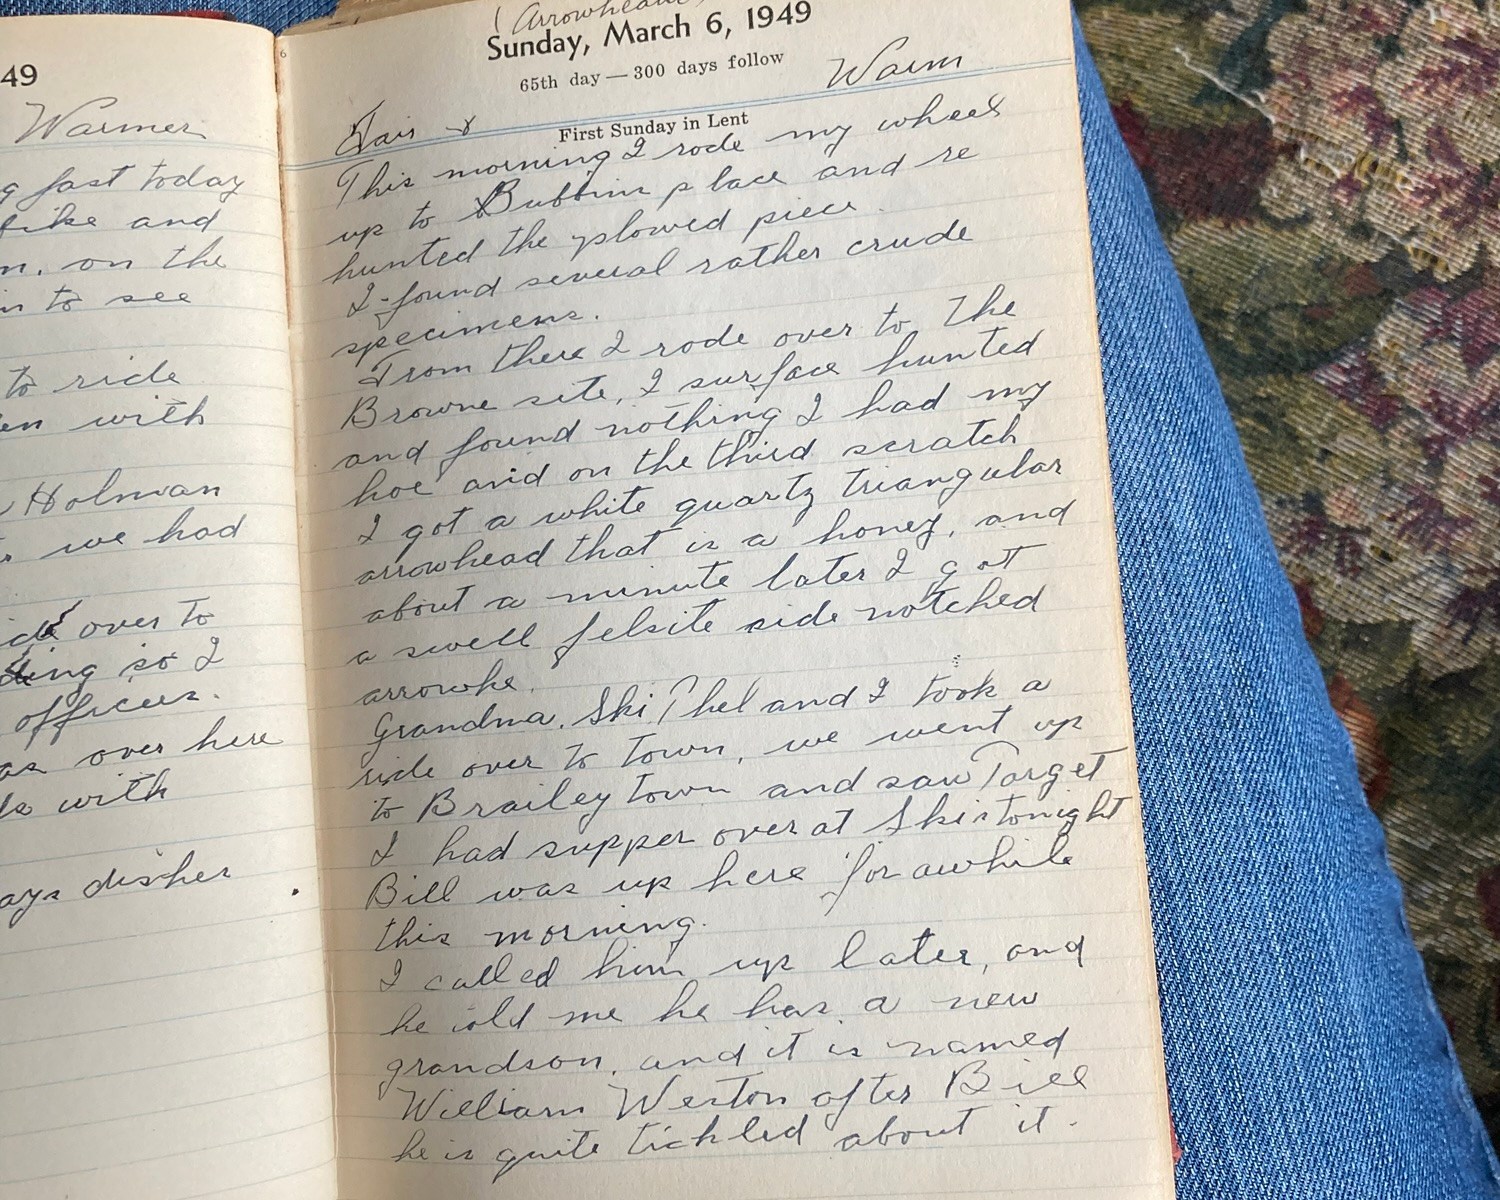 49
Warmer
g fast today
and
n. on the
in to see
to ride
en with
Holman
we had
over to
ing so I
offices.
as over here
with
ays dishes
(Arrowheads)
Sunday, March 6, 1949
65th day — 300 days follow
Warm
Fair &
First Sunday in Lent
This morning I rode my wheel
up to Bubbins place and re
hunted the plowed piece.
I found several rather crude
specimens.
From there I rode over to the
Browne site, I surface hunted
and found nothing I had my
hoe and on the third scratch
I got a white quartz triangular
arrowhead that is a honey, and
about a minute later I got
a swell felsite side notched
arrowhe.
Grandma. Ski Phel and I took a
ride over to town, we went up
to Brailey town and saw Target
I had supper over at Skis tonight
Bill was up here for awhile
this morning.
I called him up later, and
he told me he has a new
grandson, and it is named
William Weston after Bill
he is quite tickled about it.